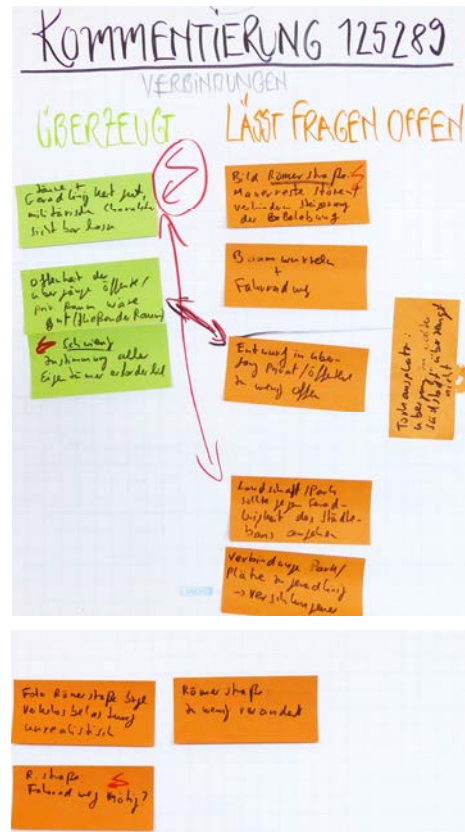 KOMMENTIERUNG 125289
VERBINDUNGEN
ÜBERZEUGT
Geradlinigkeit gut,
militärische Charakter
sichtbar lassen
Offenheit der
Übergänge öffentl/
priv Raum wäre
gut (fließender Raum)
schwierig
Zustimmung aller
Eigentümer erforderlich
LÄSST FRAGEN OFFEN
Bild Römerstraße
Mauerreste stören
verhindern Steigerung
der
Baumwurzeln
+
Fahrradweg
Entwurf im Über-
gang Privat/öffentl
zu wenig offen
Übergang in
Südstadt überzeugt
nicht
Landschaft/Park
sollte gegen Gerad-
linigkeit des Städte-
baus angehen
Verbindung Park/
Plätze zu geradlinig
→ verschlungener
Foto Römerstraße bzgl
Verkehrsbelastung
unrealistisch
Römerstraße
zu wenig verändert
R. straße
Fahrradweg nötig?